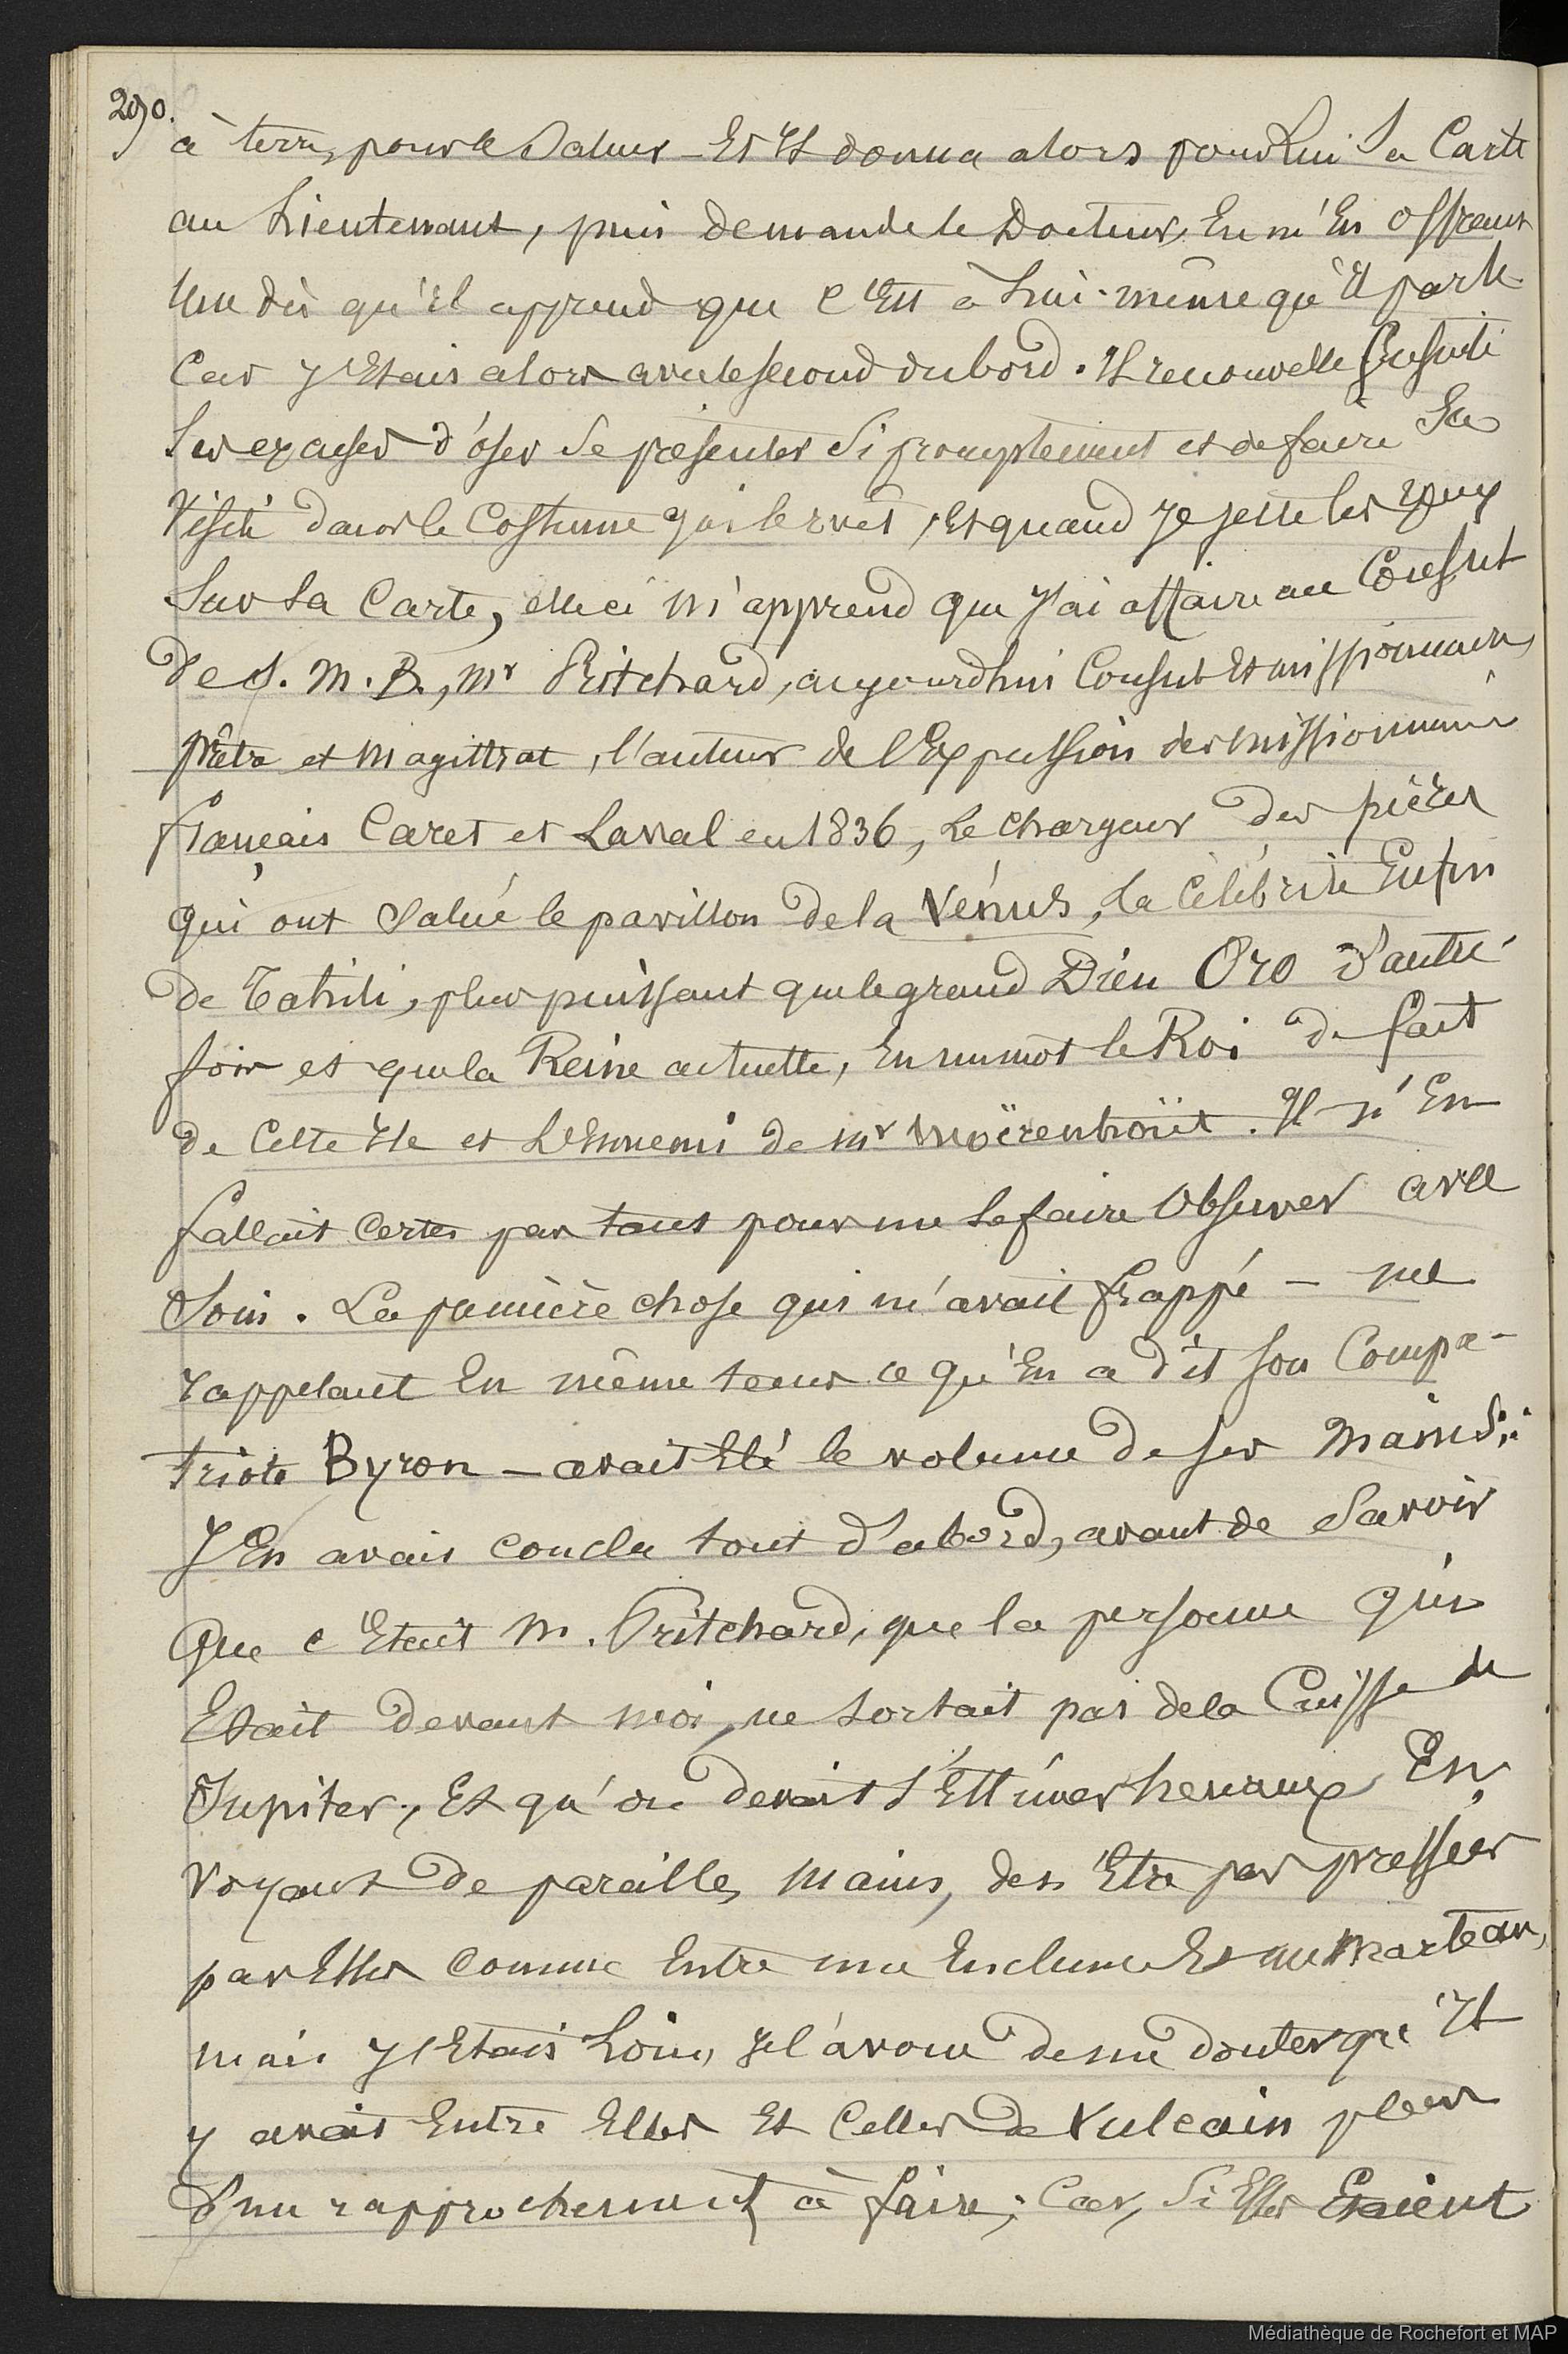 290.
à terre, pour le Saluer – Et Il donna alors pour Lui Sa Carte
au Lieutenant, puis demande le Docteur, En m'En offrant
Une dès qu'il apprend que C'Est à Lui-même qu'Il parle
Car J'Etais alors avec le second du bord. Il renouvelle Ensuite
Ses excuses d'oser Se présenter Si promptement et de faire Sa
Visite dans le Costume qui le revêt, Et quand Je jette les yeux
Sur Sa Carte, elle ci m'apprend que J'ai affaire au Consul
de S. M. B., Mr Pritchard, aujourdhui Consul Et missionnaire,
prêtre et Magistrat, l'auteur de l'Expulsion des missionnaires
français Caret et Laval en 1836, Le chargeur des pièces
qui ont Salué le pavillon de la Vénus, La Célébrité Enfin
de Tahiti, plus puissant que le grand Dieu Oro d'autre-
fois et que la Reine actuelle, En un mot le Roi de fait
de Cette Ile et L'Ennemi de Mr Moërenhoüt. Il n'En
fallait Certes pas tant pour me le faire Observer avec
Soin. La première chose qui m'avait frappé – me
rappelant En même tems ce qu'En a dit son Compa-
triote Byron – avait Eté le volume de ses Mains:
J'En avais conclu tout d'abord, avant de Savoir
Que c'Etait M. Pritchard, que la personne qui
Etait devant moi, ne sortait pas de la Cuisse de
Jupiter, Et qu'on devait s'Estimer heureux En
Voyant de pareilles Mains, de n'Etre pas pressé
par Elles Comme Entre une Enclume Et un Marteau,
mais J'Etais Loin, Je l'avoue de me douter qu'Il
y avait Entre Elles Et Celles de Vulcain plus
d'un rapprochement à faire; Car, Si Elles Etaient
Médiathèque de Rochefort et MAP